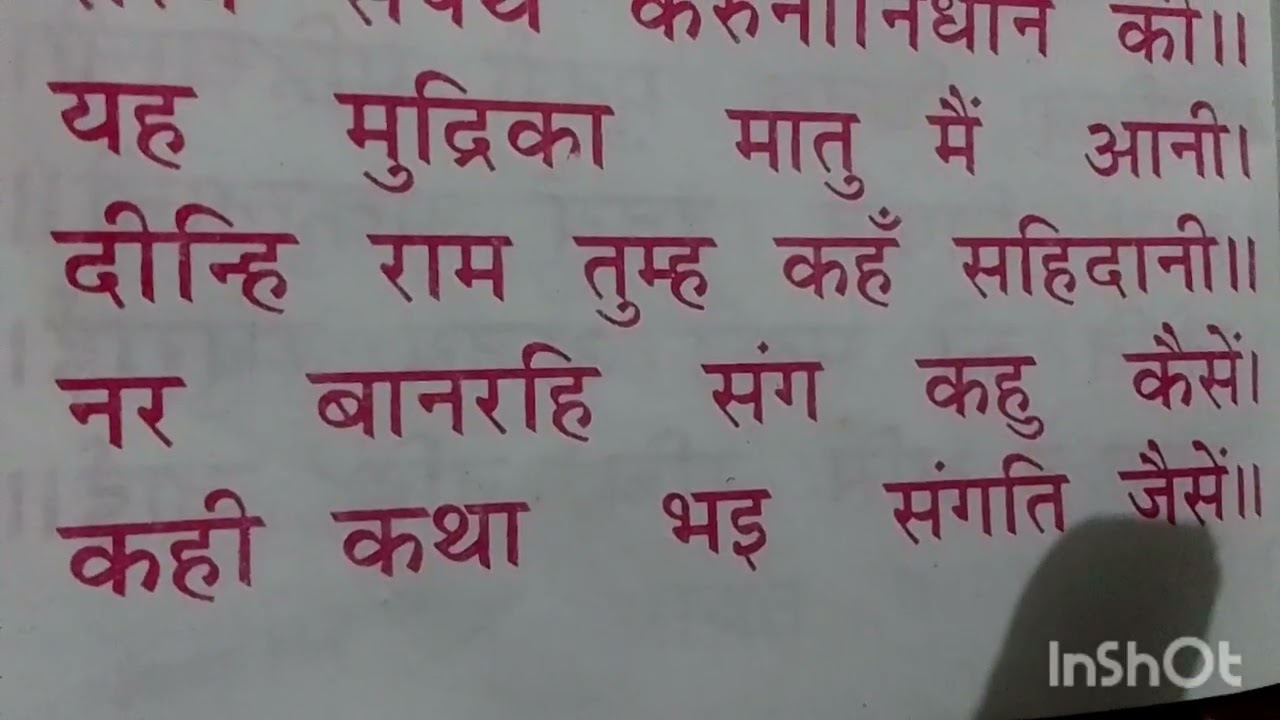 करुनानिधान की॥
यह मुद्रिका मातु मैं आनी।
दीन्हि राम तुम्ह कहँ सहिदानी॥
नर बानरहि संग कहु कैसें।
कही कथा भइ संगति जैसें॥
InShOt